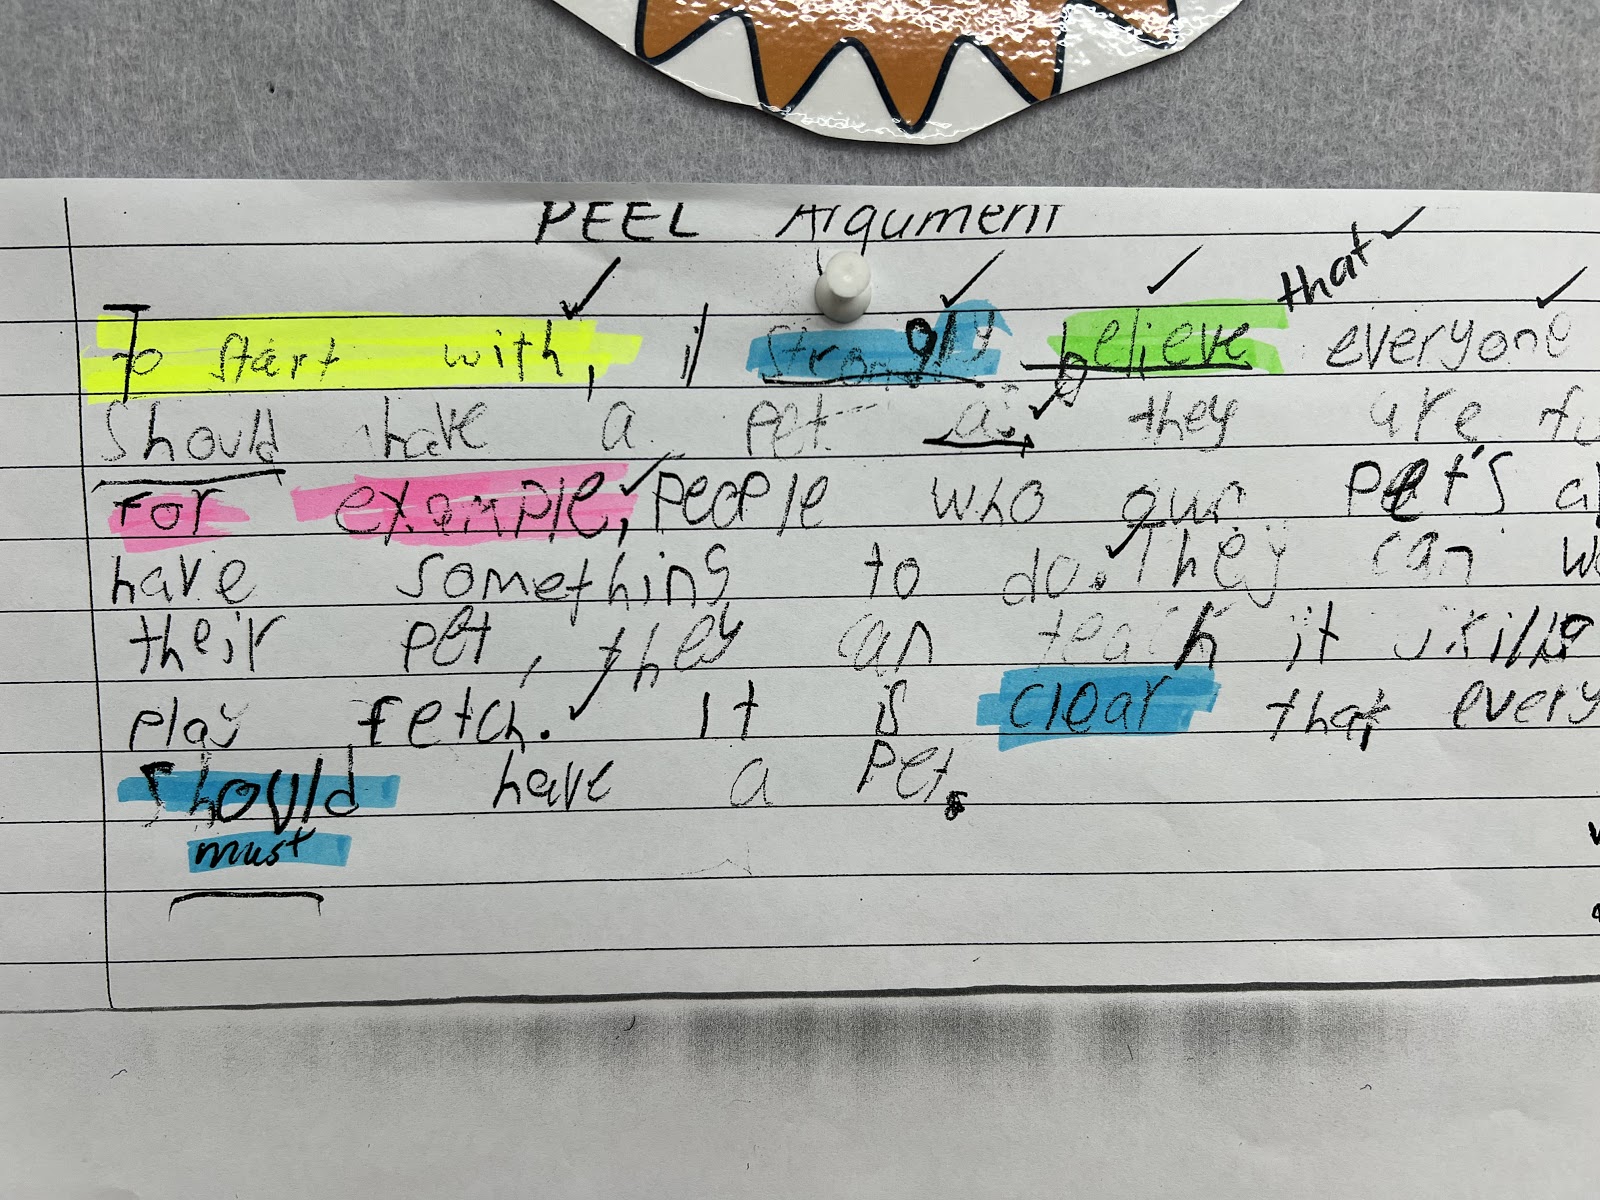 PEEL Argument
To start with, I strongly believe that everyone
should have a pet as they are fu
For example, people who our pet's al
have something to do. They can wa
their pet, they can teach it skills
play fetch. It is clear that every
should have a pet.
must